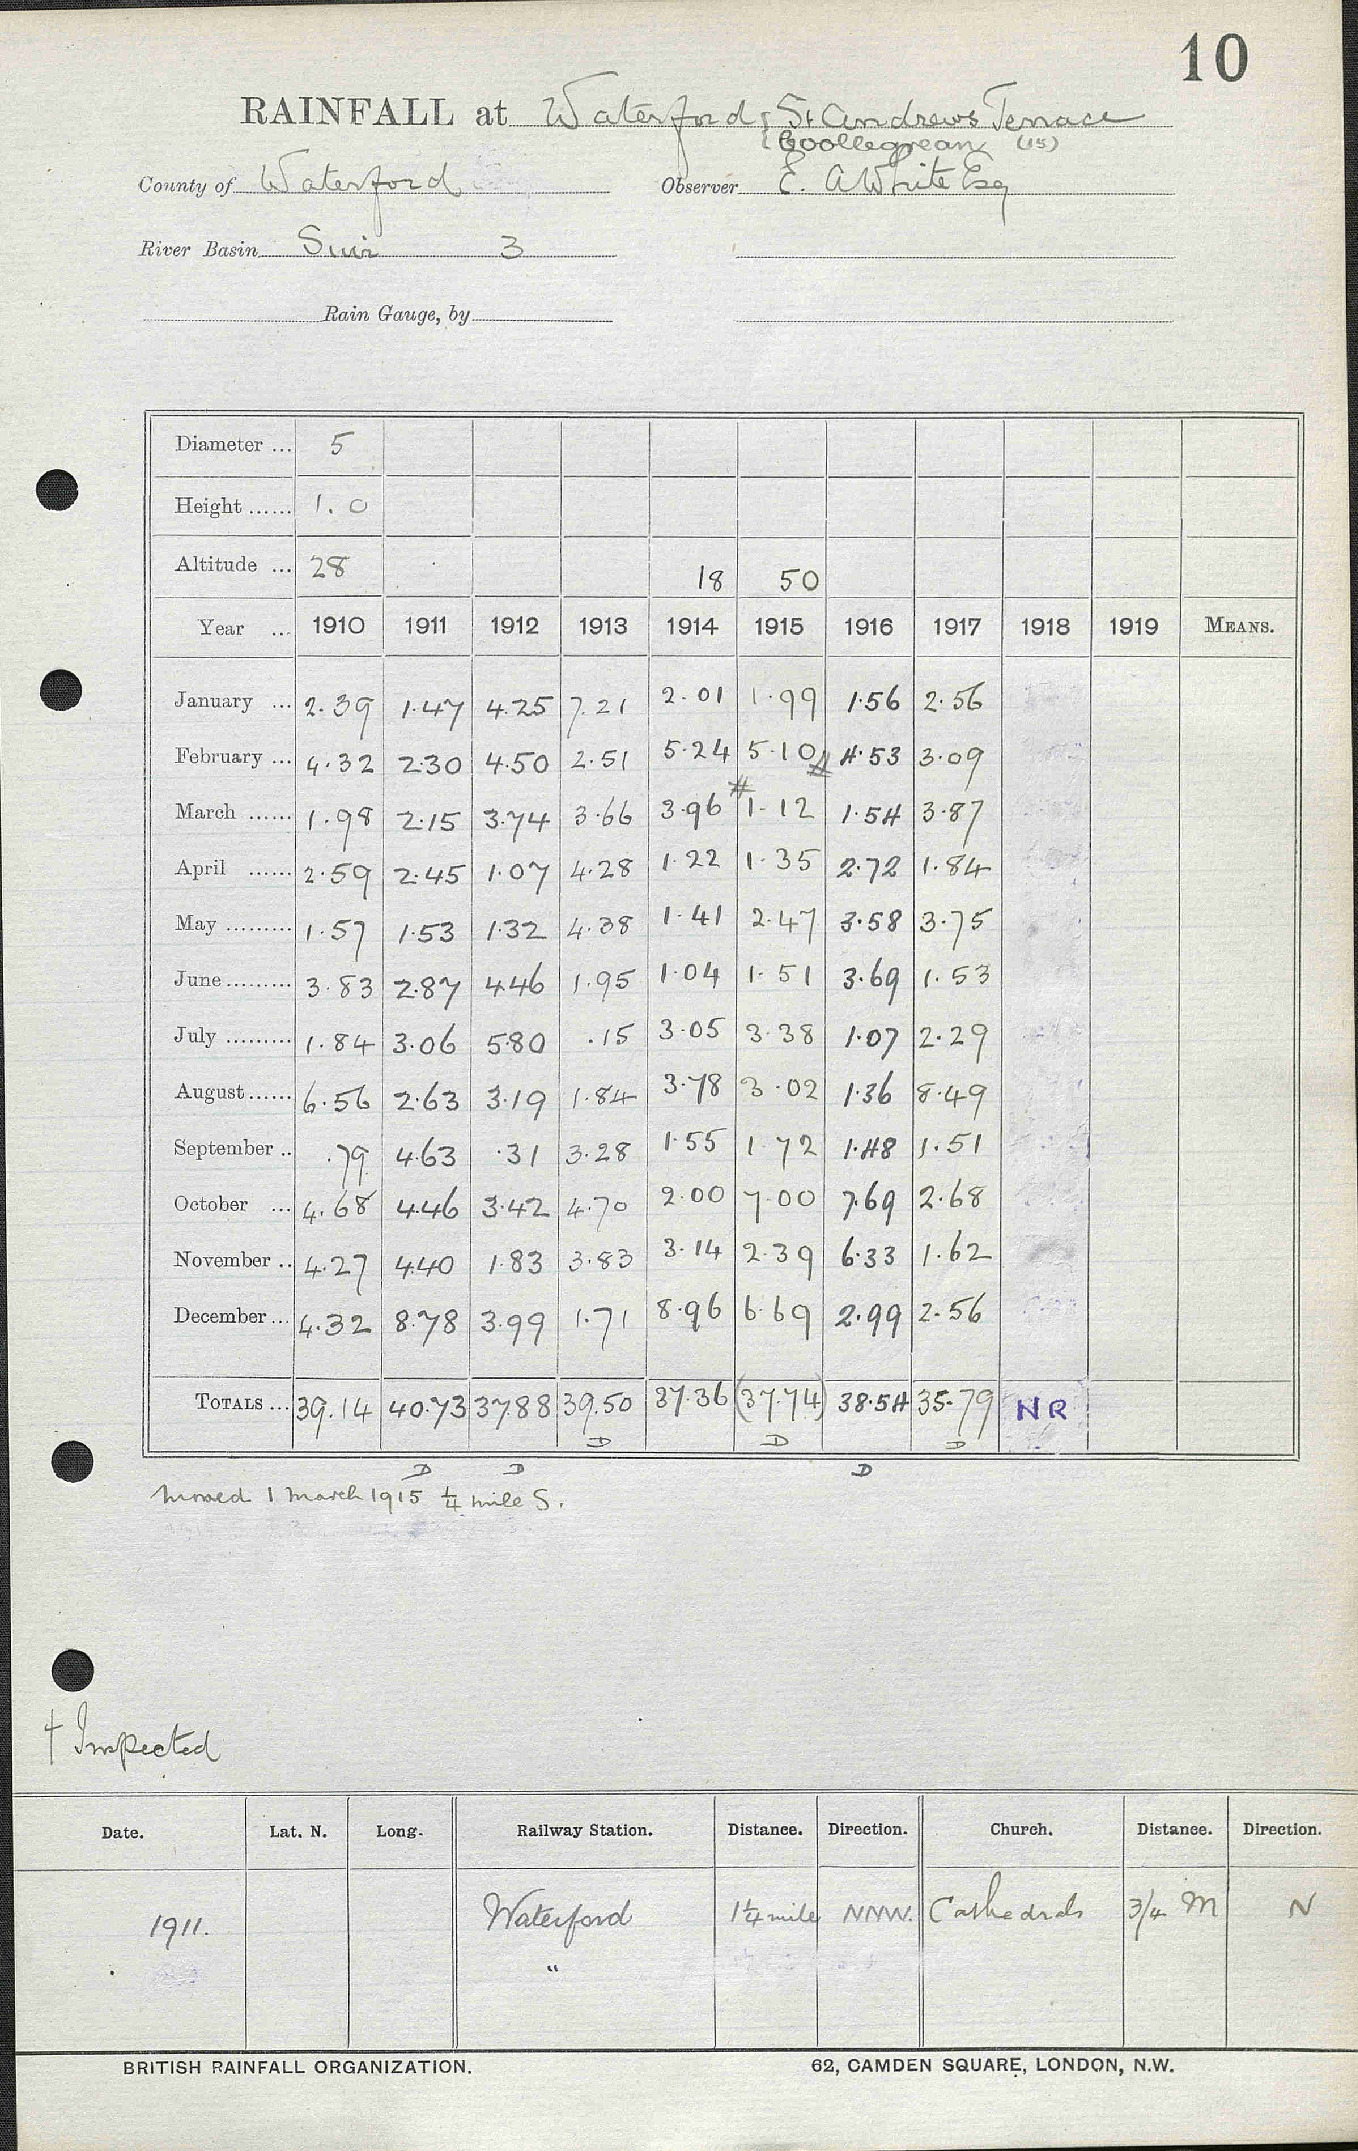 10
RAINFALL at Waterford { St Andrews Terrace
{ Coollegrean (15)
County of Waterford Observer E. A White Esq
River Basin Suir 3
Rain Gauge, by
Diameter ... 5
Height ...... 1.0
Altitude ... 28 18 50
Year ... 1910 1911 1912 1913 1914 1915 1916 1917 1918 1919 MEANS.
January ... 2.39 1.47 4.25 7.21 2.01 1.99 1.56 2.56
February ... 4.32 2.30 4.50 2.51 5.24 5.10 # 4.53 3.09
March ...... 1.98 2.15 3.74 3.66 3.96 # 1.12 1.54 3.87
April ...... 2.59 2.45 1.07 4.28 1.22 1.35 2.72 1.84
May ......... 1.57 1.53 1.32 4.38 1.41 2.47 3.58 3.75
June ......... 3.83 2.87 4.46 1.95 1.04 1.51 3.69 1.53
July ......... 1.84 3.06 5.80 .15 3.05 3.38 1.07 2.29
August ...... 6.56 2.63 3.19 1.84 3.78 3.02 1.36 8.49
September .. .79 4.63 .31 3.28 1.55 1.72 1.48 1.51
October ... 4.68 4.46 3.42 4.70 2.00 7.00 7.69 2.68
November .. 4.27 4.40 1.83 3.83 3.14 2.39 6.33 1.62
December ... 4.32 8.78 3.99 1.71 8.96 6.69 2.99 2.56
TOTALS ... 39.14 40.73 37.88 39.50 37.36 (37.74) 38.54 35.79 NR
D D D
D D D
Moved 1 March 1915 1/4 mile S.
† Inspected
Date. Lat. N. Long. Railway Station. Distance. Direction. Church. Distance. Direction.
1911. Waterford 1 1/4 mile NNW. Cathedral 3/4 M N
"
BRITISH RAINFALL ORGANIZATION. 62, CAMDEN SQUARE, LONDON, N.W.